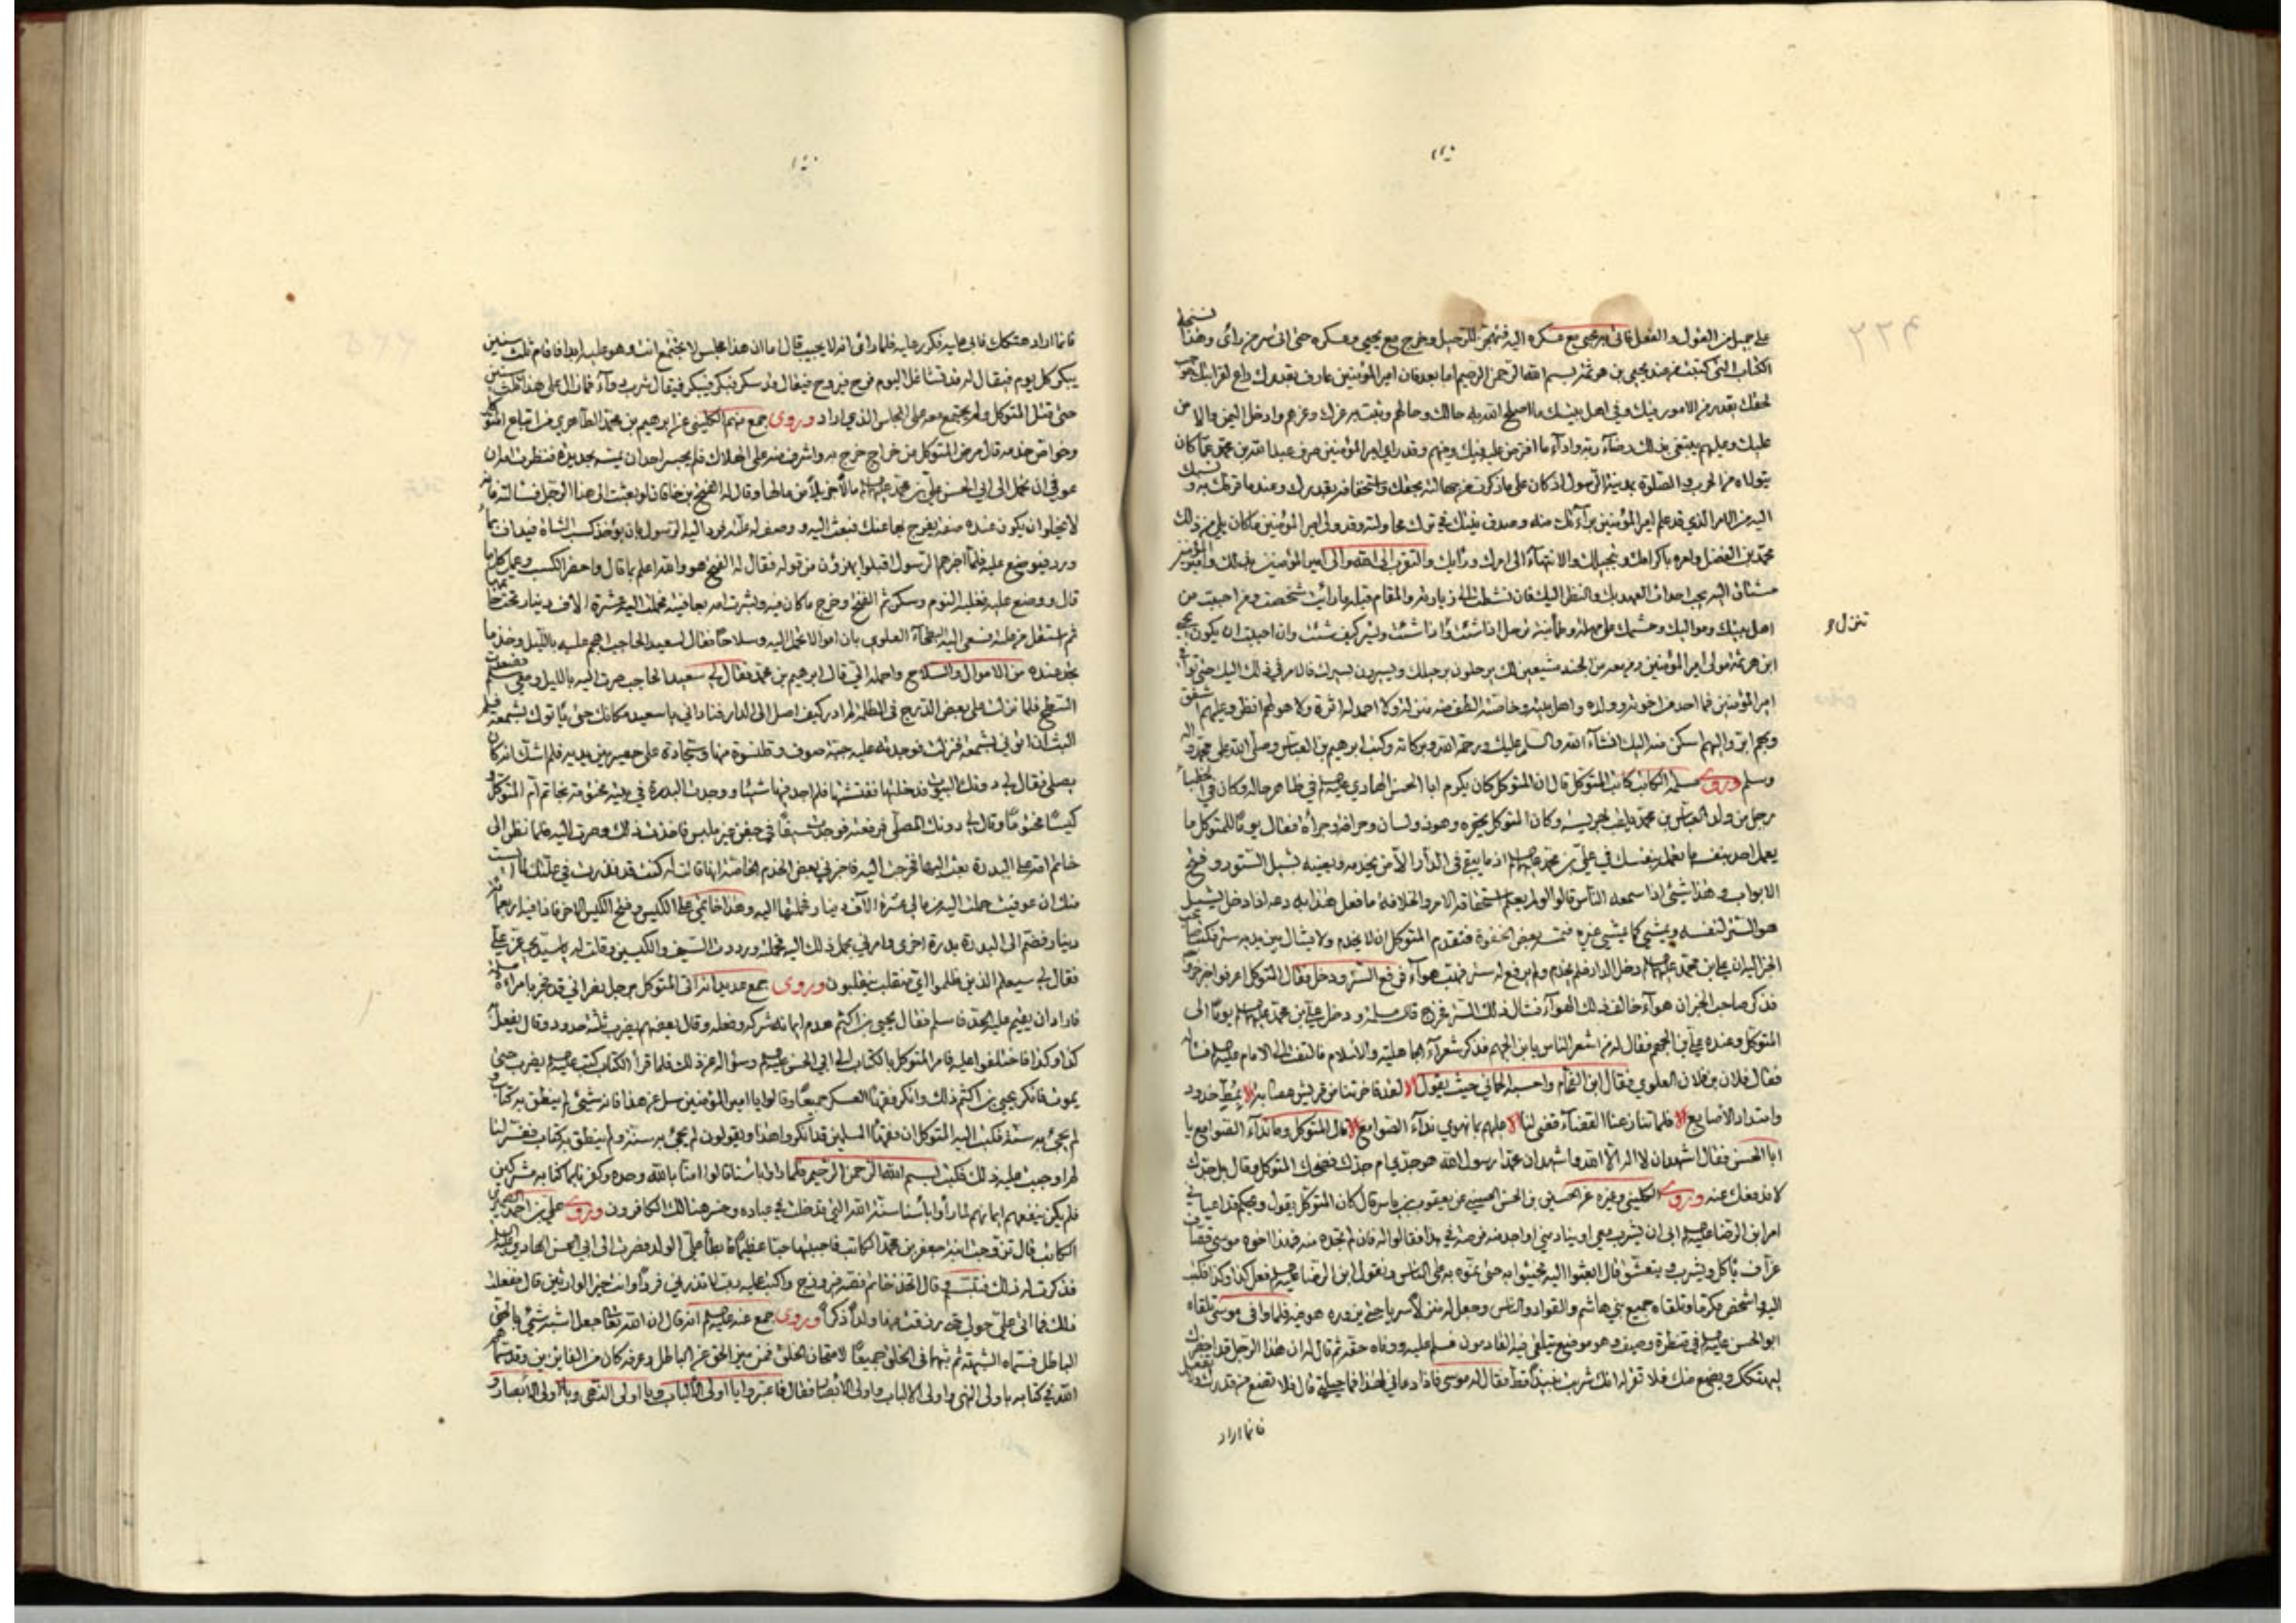 على جميل من القول والفعل فاتى يحيى مع عسكره اليه فتجهز للرحيل وخرج مع يحيى وعسكره حتى اتى سر من راى وهذا نسخة
الكتاب التي كتبت من عند يحيى بن هرثمة بسم الله الرحمن الرحيم اما بعد فان امير المؤمنين عارف بقدرك راع لقرابتك موجب
لحقك يقدر من الامور فيك وفي اهل بيتك ما اصلح الله به حالك وحالهم وثبت به عزك وعزهم وادخل اليمن والامن
عليك وعليهم يبتغي بذلك رضاء ربه واداء ما افترض عليه فيك وفيهم وقد راى امير المؤمنين صرف عبد الله بن محمد عما كان
يتولاه من الحرب والصلوة بمدينة الرسول اذ كان على ما ذكرت من جهالته بحقك واستخفافه بقدرك وعند ما قرفك به ونسبك
اليه من الامر الذي قد علم امير المؤمنين براءتك منه وصدق نيتك في ترك محاولته وقد ولى امير المؤمنين ما كان يلي من ذلك
محمد بن الفضل وامره باكرامك وتبجيلك والانتهاء الى امرك ورأيك والتقرب الى الله والى امير المؤمنين بذلك وامير المؤمنين
مشتاق اليك يحب احداث العهد بك والنظر اليك فان نشطت لزيارته والمقام قبله ما رأيت شخصت ومن احببت من
اهل بيتك ومواليك وحشمك على مهلة وطمأنينة ترحل اذا شئت وتنزل اذا شئت وتسير كيف شئت وان احببت ان يكون يحيى
ابن هرثمة مولى امير المؤمنين ومن معه من الجند مشيعين لك يرحلون برحيلك ويسيرون بسيرك فالامر في ذلك اليك حتى توافي
امير المؤمنين فما احد من اخوته وولده واهل بيته وخاصته الطف منه منزلة ولا احمد له اثرة ولا هو لهم انظر وعليهم اشفق
وبهم ابر واليهم اسكن منه اليك انشاء الله والسلم عليك ورحمة الله وبركاته وكتب ابرهيم بن العباس وصلى الله على محمد واله
وسلم وروى مسلمة الكاتب كاتب المتوكل قال ان المتوكل كان يكرم ابا الحسن الهادي عليه السلم في ظاهر حاله وكان في
رجل من ولد العباس بن محمد يلقب بهريسة وكان المتوكل يحقره وهو ذو لسان وجراة فقال يوما للمتوكل ما
يعمل احد بنفسه ما تعمله بنفسك في علي بن محمد عليهما السلم اذ ما يبقى في الدار الا من يخدمه ويعينه بشيل الستور وفتح
الابواب وهذا شيئ اذا سمعه الناس قالوا لو لم يعلم استحقاقه الامر والخلافة ما فعل هذا به دعه اذا دخل يشيل
هو الستر لنفسه ويمشي كما يمشي غيره فتمسه بعض الجفوة فتقدم المتوكل ان لا يخدم ولا يشال بين يديه ستر فكتب صاحب
الخبر اليه ان علي بن محمد عليهما السلم دخل الدار فلم يخدم ولم يرفع له ستر فهب هواء فرفع الستر ودخل فقال المتوكل اعرفوا خبر خروجه
فذكر صاحب الخبر ان هواء خالف ذلك الهواء فشال ذلك الستر فخرج قال مسلمة ودخل علي بن محمد عليهما السلم يوما الى
المتوكل وعنده علي بن الجهم فقال له من اشعر الناس يا بن الجهم فذكر شعراء الجاهلية والاسلام فالتفت الى الامام عليه السلم فسأله
فقال فلان بن فلان العلوي فقال ابن الفحام واحسبه الحماني حيث يقول لقد فاخرتنا من قريش عصابة بمط خدود
وامتداد الاصابع فلما تنازعنا القضاء قضى لنا عليهم بما نهوى نداء الصوامع قال المتوكل وما نداء الصوامع يا
ابا الحسن فقال اشهد ان لا اله الا الله واشهد ان محمدا رسول الله هو جدي ام جدك فضحك المتوكل وقال بل جدك
لا ندفعك عنه وروى الكليني وغيره عن الحسين بن الحسن الحسيني عن يعقوب بن ياسر قال كان المتوكل يقول ويحكم قد اعياني
امر ابن الرضا عليه السلم ابى ان يشرب معي او ينادمني او اجد منه فرصة في هذا فقالوا له فان لم تجده منه فهذا اخوه موسى قصاف
عزاف يأكل ويشرب ويتعشق قال ابعثوا اليه فجيئوا به حتى نموه به على الناس ونقول ابن الرضا عليه السلم فعل كذا وكذا فكتب
اليه واشخص مكرما وتلقاه جميع بني هاشم والقواد والناس وجعل له منزلا سريا هو فيه فلما وافى موسى تلقاه
ابو الحسن عليه السلم في قنطرة وصيف وهو موضع يتلقى فيه القادمون فسلم عليه ووفاه حقه ثم قال له ان هذا الرجل قد احضرك
ليهتكك ويضع منك فلا تقر له انك شربت نبيذا قط فقال له موسى فاذا دعاني لهذا فما حيلتي قال فلا تضع من قدرك ولا تفعل
فانما اراد
تنزل و
٢٢٤
فانما اراد هتكك فابى عليه فكرر عليه فلما رأى انه لا يجيب قال اما ان هذا مجلس لا يجتمع انت وهو عليه ابدا فاقام ثلث سنين
يبكر كل يوم فيقال له قد تشاغل اليوم فرح فيروح فيقال قد سكر فبكر فيبكر فيقال شرب دواء فما زال على هذا ثلث سنين
حتى قتل المتوكل ولم يجتمع معه على المجلس الذي اراد وروى جمع منهم الكليني عن ابرهيم بن محمد الطاهري من اتباع المتوكل
وخواص خدمه قال مرض المتوكل من خراج خرج به واشرف منه على الهلاك فلم يجسر احد ان يمسه بحديدة فنذرت امه ان
عوفي ان تحمل الى ابي الحسن علي بن محمد عليهما السلم مالا جزيلا من مالها وقال له الفتح بن خاقان لو بعثت الى هذا الرجل فسألته فانه
لا يخلو ان يكون عنده صفة يفرج بها عنك فبعث اليه ووصف له علته فرد اليه الرسول بان يؤخذ كسب الشاة فيداف بماء
ورد فيوضع عليه فلما اخبرهم الرسول اقبلوا يهزؤن من قوله فقال له الفتح هو والله اعلم بما قال واحضر الكسب وعمل كما
قال ووضع عليه فغلبه النوم وسكن ثم انفتح وخرج ما كان فيه وبشرت امه بعافيته فحملت اليه عشرة الاف دينار تحت خاتمها
ثم استقل من علته فسعى اليه البطحاء العلوي بان اموالا تحمل اليه وسلاحا فقال لسعيد الحاجب اهجم عليه بالليل وخذ ما
تجد عنده من الاموال والسلاح واحمله الي قال ابرهيم بن محمد فقال لي سعيد الحاجب صرت اليه بالليل ومعي سلم فصعدت
السطح فلما نزلت على بعض الدرج في الظلمة لم ادر كيف اصل الى الدار فناداني يا سعيد مكانك حتى يأتوك بشمعة فلم
البث ان اتوني بشمعة فنزلت فوجدته عليه جبة صوف وقلنسوة منها وسجادة على حصير بين يديه فلم اشك انه كان
يصلي فقال لي دونك البيوت فدخلتها ففتشتها فلم اجد فيها شيئا ووجدت البدرة في بيته مختومة بخاتم ام المتوكل و
كيسا مختوما وقال لي دونك المصلى فرفعته فوجدت سيفا في جفن غير ملبس فاخذت ذلك وصرت اليه فلما نظر الى
خاتم امه على البدرة بعث اليها فخرجت اليه فاخبرني بعض الخدم الخاصة انها قالت له كنت قد نذرت في علتك لما ايست
منك ان عوفيت حملت اليه من مالي عشرة الآف دينار فحملتها اليه وهذا خاتمي على الكيس وفتح الكيس الاخر فاذا فيه اربعمائة
دينار فضم الى البدرة بدرة اخرى وامرني بحمل ذلك اليه فحملته ورددت السيف والكيسين وقلت له يا سيدي عز علي
فقال لي سيعلم الذين ظلموا اي منقلب ينقلبون وروى جمع عديد انه اتى المتوكل برجل نصراني قد فجر بامراة مسلمة
فاراد ان يقيم عليه الحد فاسلم فقال يحيى بن اكثم هدم ايمانه شركه وفعله وقال بعضهم يضرب ثلثة حدود وقال يفعل
كذا وكذا فاختلفوا عليه فامر المتوكل بالكتاب الى ابي الحسن عليه السلم وسؤاله عن ذلك فلما قرأ الكتاب كتب عليه السلم يضرب حتى
يموت فانكر يحيى بن اكثم ذلك وانكر فقهاء العسكر جميعا وقالوا يا امير المؤمنين سل عن هذا فانه شيئ لم ينطق به كتاب و
لم يجئ به سنة فكتب اليه المتوكل ان فقهاء المسلمين قد انكروا هذا ويقولون لم يجئ به سنة ولم ينطق به كتاب ففسر لنا
لم اوجبت عليه ذلك فكتب بسم الله الرحمن الرحيم فلما راوا باسنا قالوا امنا بالله وحده وكفرنا بما كنا به مشركين
فلم يكن ينفعهم ايمانهم لما رأوا بأسنا سنة الله التي قد خلت في عباده وخسر هنالك الكافرون وروى علي بن احمد
الكاتب قال تزوجت ابنة جعفر بن محمد الكاتب فاحببتها حبا عظيما فابطأ علي الولد فصرت الى ابي الحسن الهادي عليه السلم
فذكرت له ذلك فتبسم وقال اتخذ خاتم فصه فيروزج واكتب عليه رب لا تذرني فردا وانت خير الوارثين قال ففعلت
ذلك فما اتى علي حول حتى رزقت منها ولدا ذكرا وروى جمع عنه عليه السلم انه قال ان الله تعالى جعل اشبه شيئ بالحق
الباطل فسماه الشبهة ثم بثها في الخلق جميعا لامتحان الخلق فمن ميز الحق عن الباطل وعرفه كان من الفايزين وقد سماهم
الله في كتابه باولى النهى واولى الالباب واولى الابصار فقال فاعتبروا يا اولى الالباب ويا اولى النهى ويا اولى الابصار و